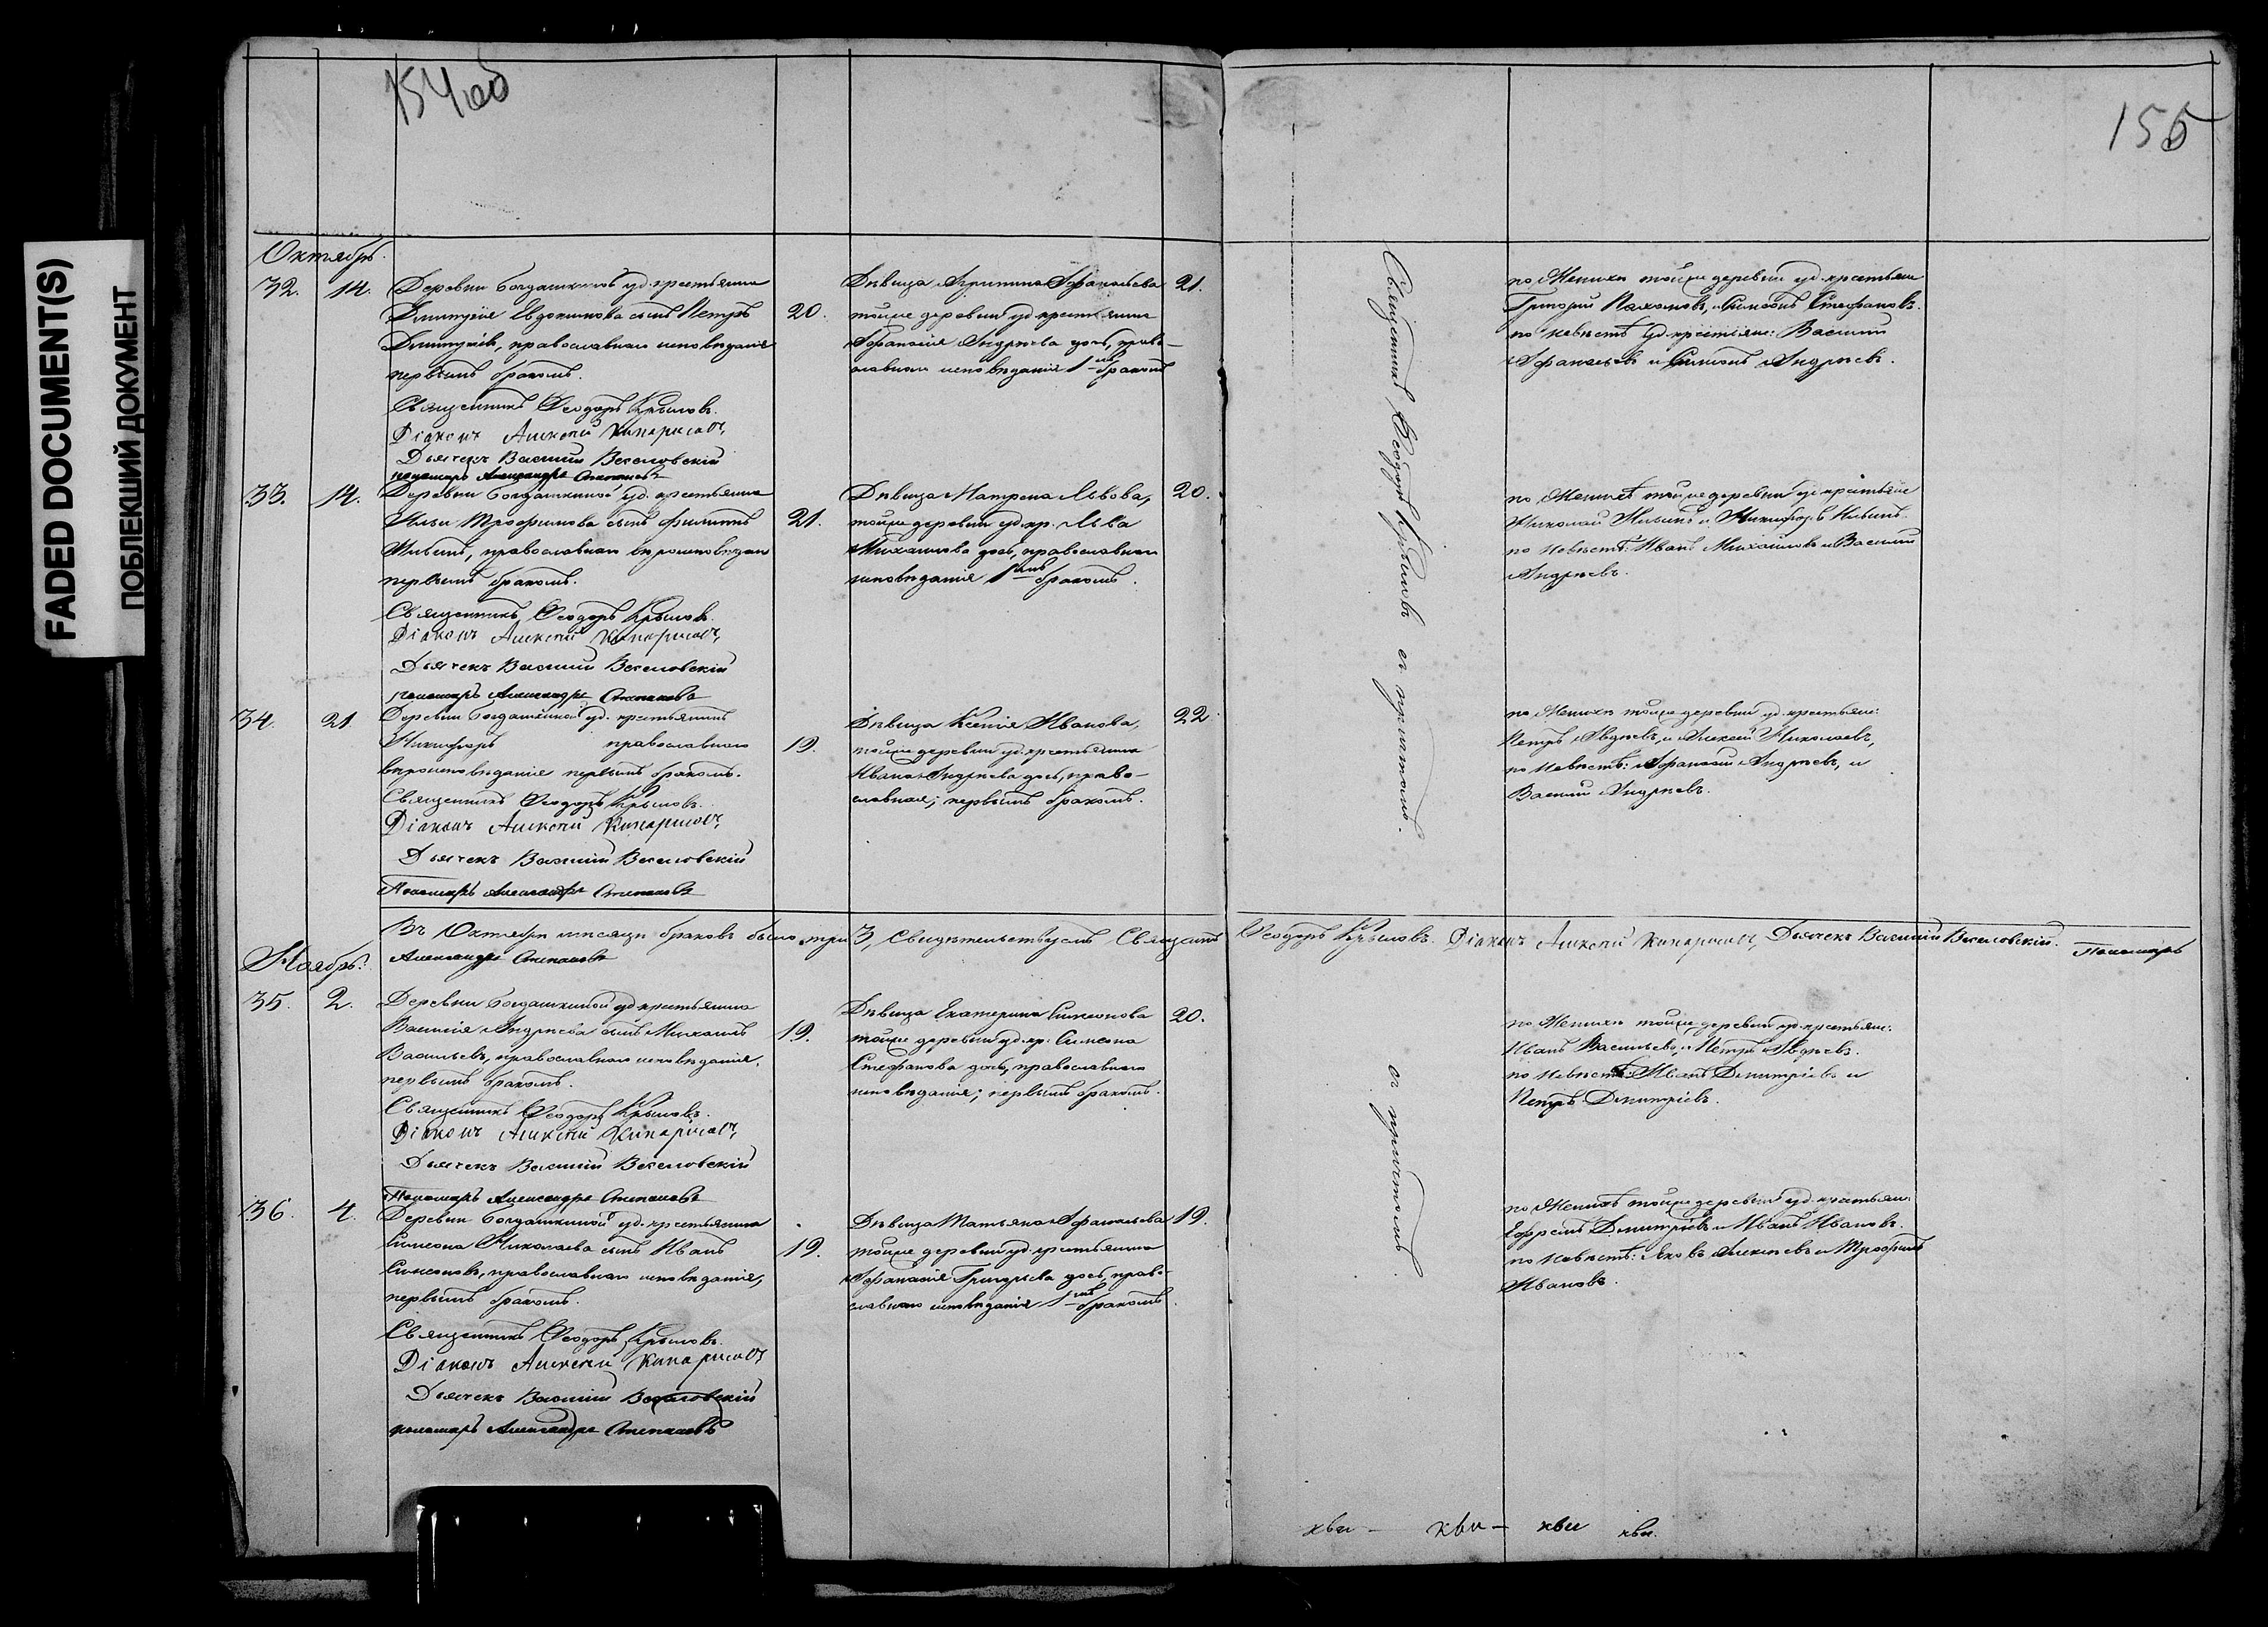 FADED DOCUMENT(S)
ПОБЛЕКШИЙ ДОКУМЕНТ
154об
155
Октябрь.
32. 14. Деревни Богдашкиной уд. крестьянина
Димитрія Евдокимова сынъ Петръ 20.
Димитріевъ, православнаго исповѣданія
первымъ бракомъ.
Священникъ Ѳеодоръ Крыловъ.
Діаконъ Алексѣй Кипарисовъ,
Дьячекъ Василій Веселовскій
пономарь Александръ Степановъ
Дѣвица Агрипина Афанасьева 21.
тойже деревни уд. крестьянина
Афанасія Андреева дочь, право-
славнаго исповѣданія 1мъ бракомъ
по Женихѣ тойже деревни уд. крестьяне
Григорій Пахомовъ, и Симеонъ Стефановъ.
по невѣстѣ уд. крестьяне: Василій
Афанасьевъ и Симеонъ Андреевъ.
33. 14. Деревни Богдашкиной уд. крестьянина
Ильи Трофимова сынъ Филиппъ 21.
Ильинъ, православнаго вѣроисповѣданія
первымъ бракомъ.
Священникъ Ѳеодоръ Крыловъ.
Діаконъ Алексѣй Кипарисовъ,
Дьячекъ Василій Веселовскій
пономарь Александръ Степановъ
Дѣвица Матрена Львова, 20.
тойже деревни уд. кр. Льва
Михайлова дочь, православнаго
исповѣданія 1мъ бракомъ.
по Женихѣ тойже деревни уд. крестьяне
Николай Ильинъ и Никифоръ Ильинъ.
по невѣстѣ: Иванъ Михайловъ и Василій
Андреевъ.
34. 21 Деревни Богдашкиной уд. крестьянинъ
Никифоръ православнаго 19.
вѣроисповѣданія первымъ бракомъ.
Священникъ Ѳеодоръ Крыловъ.
Діаконъ Алексѣй Кипарисовъ,
Дьячекъ Василій Веселовскій
Пономарь Александръ Степановъ
Дѣвица Ксенія Иванова, 22.
тойже деревни уд. крестьянина
Ивана Андреева дочь, право-
славная; первымъ бракомъ.
по Женихѣ тойже деревни уд. крестьяне:
Петръ Авдѣевъ, и Алексѣй Николаевъ,
по невѣстѣ: Афанасій Андреевъ, и
Василій Андреевъ.
Священникъ Ѳеодоръ Крыловъ съ причтомъ.
Въ Октябрѣ мѣсяцѣ браковъ было три 3, Свидѣтельствуемъ Священникъ Ѳеодоръ Крыловъ. Діаконъ Алексѣй Кипарисовъ, Дьячекъ Василій Веселовскій. Пономарь
Александръ Степановъ
Ноябрь.
35. 2. Деревни Богдашкиной уд. крестьянина
Василія Андреева сынъ Михаилъ 19.
Васильевъ, православнаго исповѣданія,
первымъ бракомъ.
Священникъ Ѳеодоръ Крыловъ.
Діаконъ Алексѣй Кипарисовъ,
Дьячекъ Василій Веселовскій
Пономарь Александръ Степановъ
Дѣвица Екатерина Симеонова 20.
тойже деревни уд. кр. Симеона
Стефанова дочь, православнаго
исповѣданія; первымъ бракомъ.
по Женихѣ тойже деревни уд. крестьяне:
Иванъ Васильевъ, и Петръ Авдѣевъ.
по невѣстѣ: Иванъ Димитріевъ и
Петръ Димитріевъ.
36. 4. Деревни Богдашкиной уд. крестьянина
Симеона Николаева сынъ Иванъ 19.
Симеоновъ, православнаго исповѣданія,
первымъ бракомъ.
Священникъ Ѳеодоръ Крыловъ.
Діаконъ Алексѣй Кипарисовъ,
Дьячекъ Василій Веселовскій
пономарь Александръ Степановъ
Дѣвица Матьяна Афанасьева 19.
тойже деревни уд. крестьянина
Афанасія Григорьева дочь, право-
славнаго исповѣданія 1мъ бракомъ.
по Женихѣ тойже деревни уд. крестьяне
Ефремъ Димитріевъ и Иванъ Ивановъ.
по невѣстѣ: Яковъ Алексѣевъ и Трофимъ
Ивановъ.
съ причтомъ